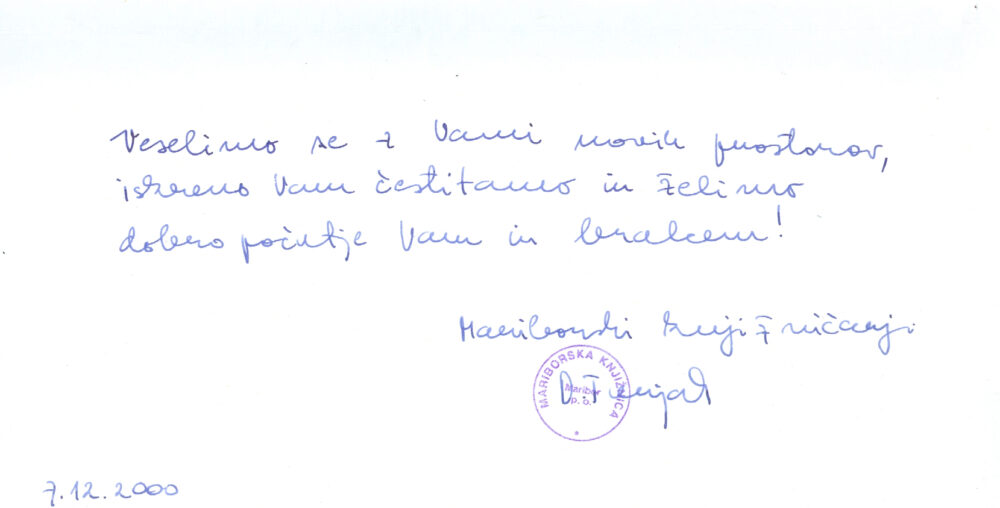 Veselimo se z Vami novih prostorov,
iskreno Vam čestitamo in želimo
dobro počutje Vam in bralcem!
Mariborski knjižničarji
MARIBORSKA KNJIŽNICA
Maribor
p. o.
7.12.2000